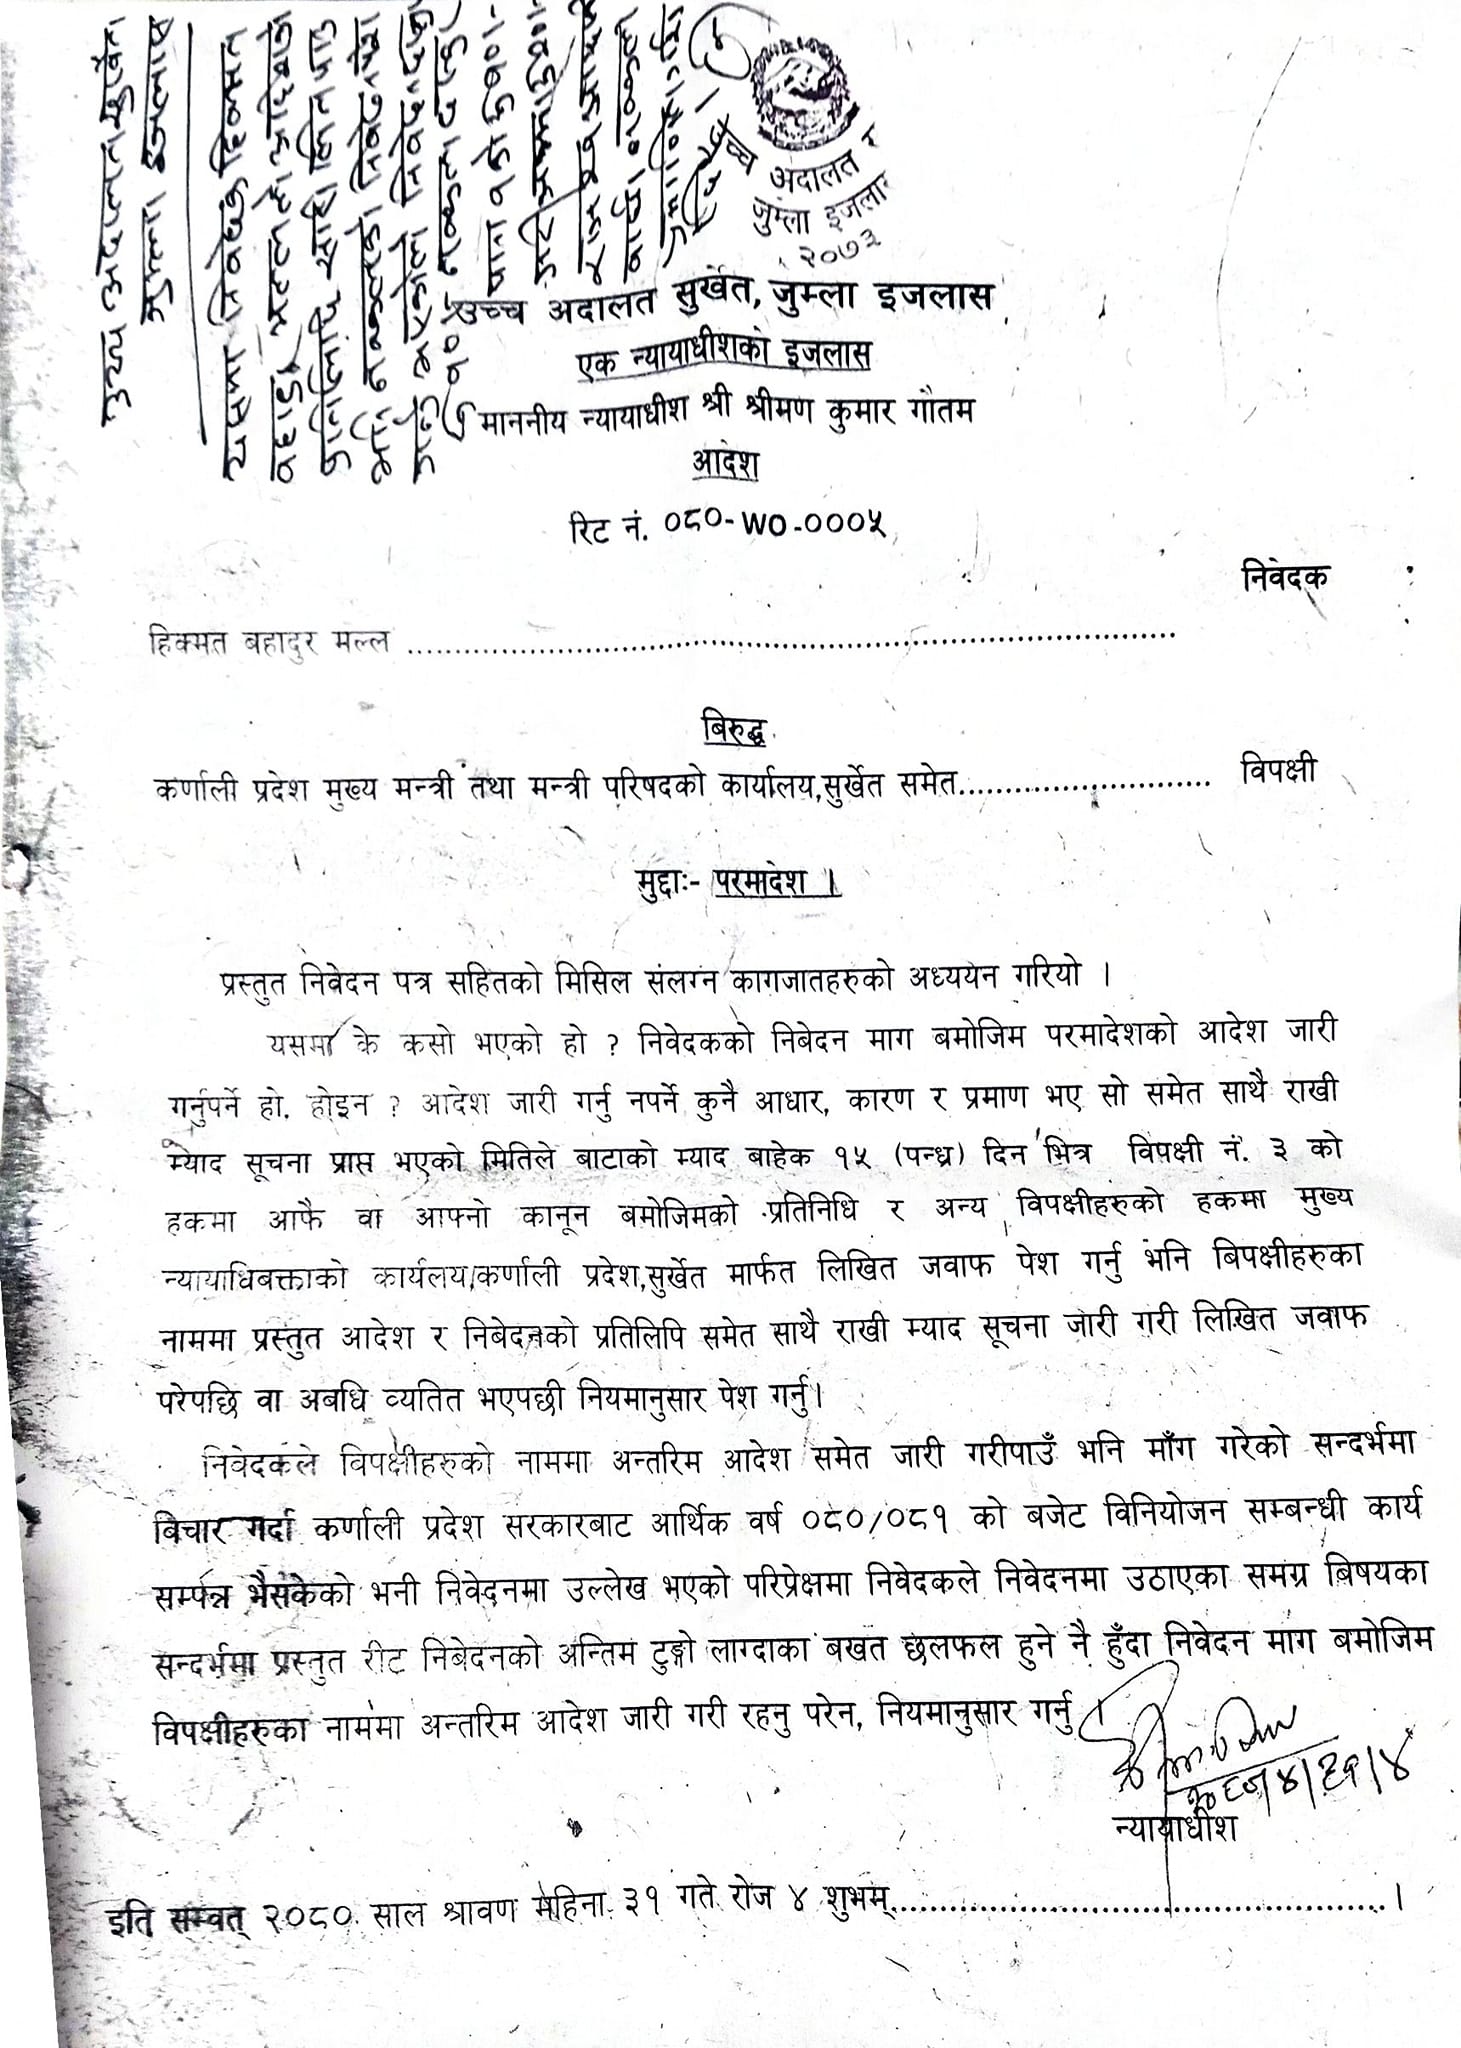 उच्च अदालत सुर्खेत
जुम्ला इजलास
उच्च अदालत
जुम्ला इजलास
२०७३
उच्च अदालत सुर्खेत, जुम्ला इजलास
एक न्यायाधीशको इजलास
माननीय न्यायाधीश श्री श्रीमण कुमार गौतम
आदेश
रिट नं. ०८०-WO-०००५
निवेदक
हिक्मत बहादुर मल्ल ..........................................................................................
बिरुद्ध
कर्णाली प्रदेश मुख्य मन्त्री तथा मन्त्री परिषदको कार्यालय,सुर्खेत समेत............................ विपक्षी
मुद्दाः- परमादेश ।
प्रस्तुत निवेदन पत्र सहितको मिसिल संलग्न कागजातहरुको अध्ययन गरियो ।
यसमा के कसो भएको हो ? निवेदकको निबेदन माग बमोजिम परमादेशको आदेश जारी
गर्नुपर्ने हो. होइन ? आदेश जारी गर्नु नपर्ने कुनै आधार, कारण र प्रमाण भए सो समेत साथै राखी
म्याद सूचना प्राप्त भएको मितिले बाटाको म्याद बाहेक १५ (पन्ध्र) दिन भित्र विपक्षी नं. ३ को
हकमा आफै वा आफ्नो कानून बमोजिमको प्रतिनिधि र अन्य विपक्षीहरुको हकमा मुख्य
न्यायाधिबक्ताको कार्यलय,कर्णाली प्रदेश,सुर्खेत मार्फत लिखित जवाफ पेश गर्नु भनि बिपक्षीहरुका
नाममा प्रस्तुत आदेश र निबेदनको प्रतिलिपि समेत साथै राखी म्याद सूचना जारी गरी लिखित जवाफ
परेपछि वा अबधि व्यतित भएपछी नियमानुसार पेश गर्नु।
निवेदकले विपक्षीहरुको नाममा अन्तरिम आदेश समेत जारी गरीपाउँ भनि माँग गरेको सन्दर्भमा
बिचार गर्दा कर्णाली प्रदेश सरकारबाट आर्थिक वर्ष ०८०/०८१ को बजेट विनियोजन सम्बन्धी कार्य
सम्पन्न भैसकेको भनी निवेदनमा उल्लेख भएको परिप्रेक्षमा निवेदकले निवेदनमा उठाएका समग्र बिषयका
सन्दर्भमा प्रस्तुत रीट निबेदनको अन्तिम टुङ्गो लाग्दाका बखत छलफल हुने नै हुँदा निवेदन माग बमोजिम
विपक्षीहरुका नाममा अन्तरिम आदेश जारी गरी रहनु परेन, नियमानुसार गर्नु ।
न्यायाधीश
इति सम्वत् २०८० साल श्रावण महिना ३१ गते रोज ४ शुभम्......................................................।